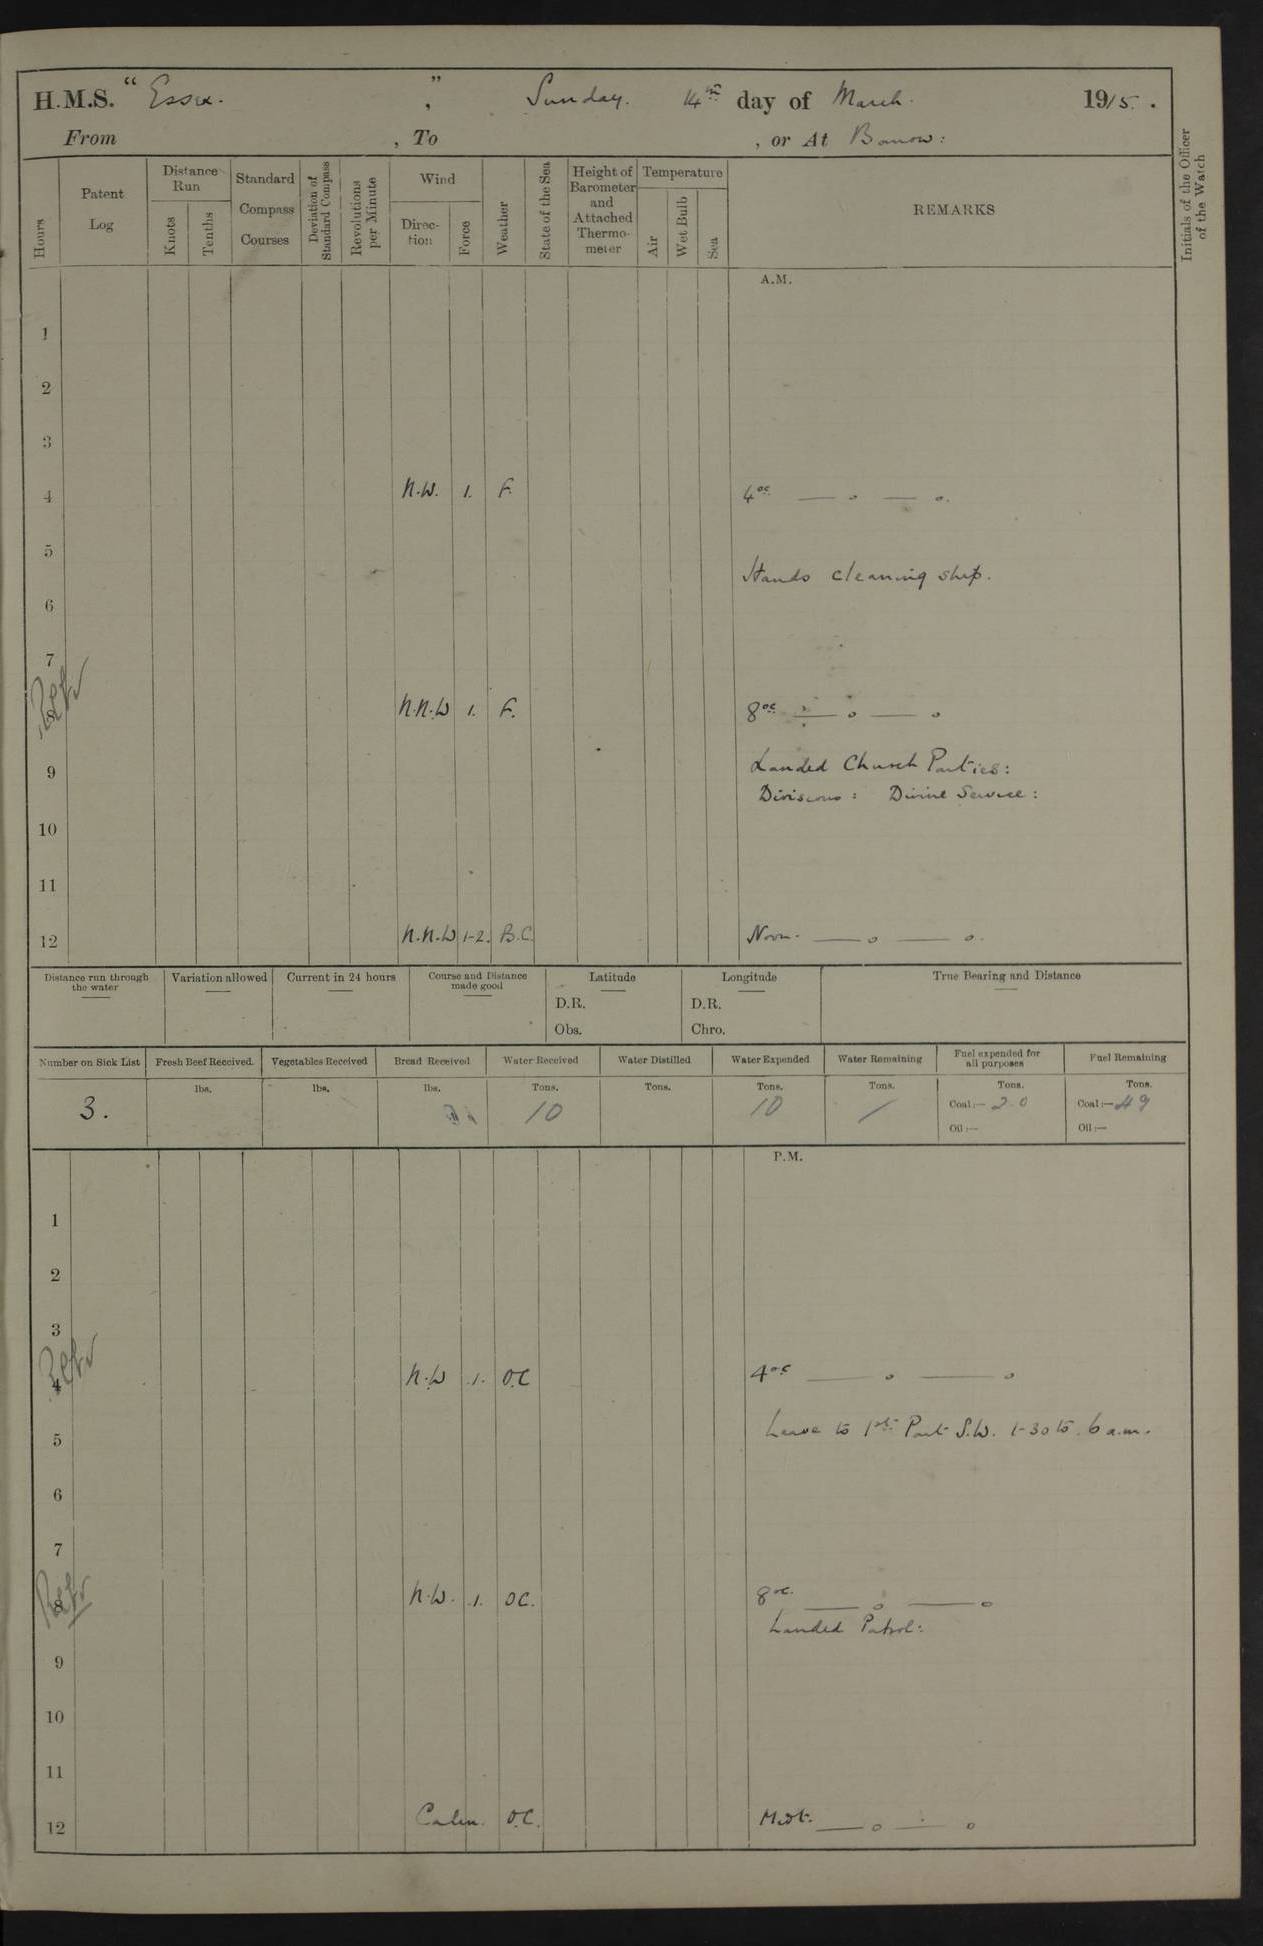 H.M.S. "Essex." , Sunday. 14th day of March. 1915.
From , To , or At Barrow:
Hours
Patent Log
Distance Run
Knots
Tenths
Standard Compass Courses
Deviation of Standard Compass
Revolutions per Minute
Wind
Direction
Force
Weather
State of the Sea
Height of Barometer and Attached Thermometer
Temperature
Air
Wet Bulb
Sea
REMARKS
Initials of the Officer of the Watch
A.M.
1
2
3
4 N.W. 1. F. 4oc — o — o.
5
Hands cleaning ship.
6
7
8 N.N.W 1. F. 8oc — o — o
9 Landed Church Parties:
Divisions: Divine Service:
10
11
12 N.N.W 1-2. B.C. Noon. — o — o.
Distance run through the water
Variation allowed
Current in 24 hours
Course and Distance made good
Latitude
D.R.
Obs.
Longitude
D.R.
Chro.
True Bearing and Distance
Number on Sick List
Fresh Beef Received.
Vegetables Received
Bread Received
Water Received
Water Distilled
Water Expended
Water Remaining
Fuel expended for all purposes
Fuel Remaining
lbs. lbs. lbs. Tons. Tons. Tons. Tons. Tons. Tons.
3. 10 10 / Coal:— 20 Coal:— 49
Oil:— Oil:—
P.M.
1
2
3
4 N.W .1. O.C 4oc — o — o
5 Leave to 1st Part S.W. 1-30 to 6 a.m.
6
7
8 N.W. .1. O.C. 8oc. — o — o
Landed Patrol:
9
10
11
12 Calm. O.C. Midt. — o — o